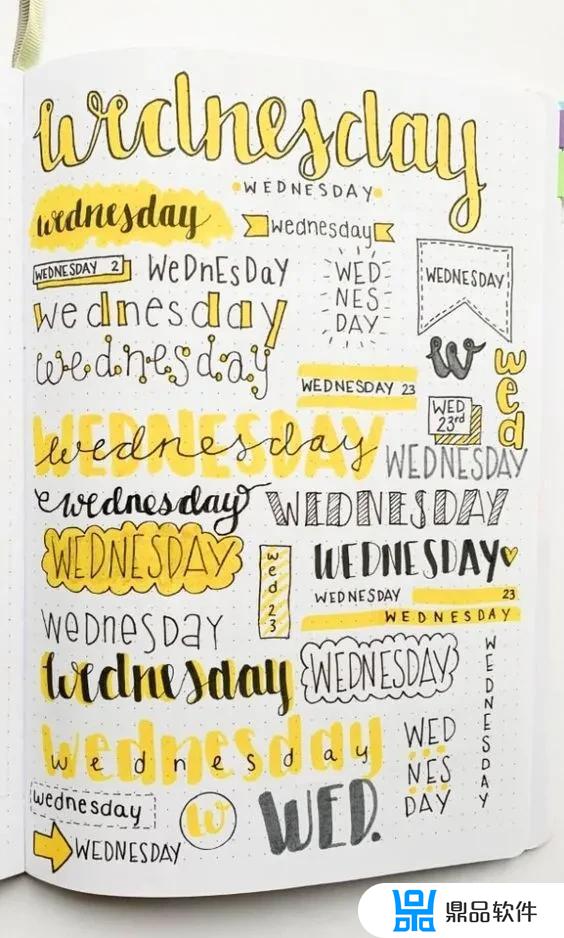 wednesday
WEDNESDAY
wednesday
wednesday
WEDNESDAY 2
WeDnEsDaY
WED
NES
DAY
WEDNESDAY
wednesday
wednesday
w
wed
WEDNESDAY 23
WED
23rd
WEDNESDAY
wednesday
WEDNESDAY
wednesday
WEDNESDAY
WEDNESDAY
wed 23
WEDNESDAY
WEDNESDAY 23
WEDNESDAY
wednesday
WEDNESDAY
wednesday
WEDNESDAY
wednesday
wednesday
WED
NES
DAY
wednesday
w
WED.
WEDNESDAY
鼎品软件